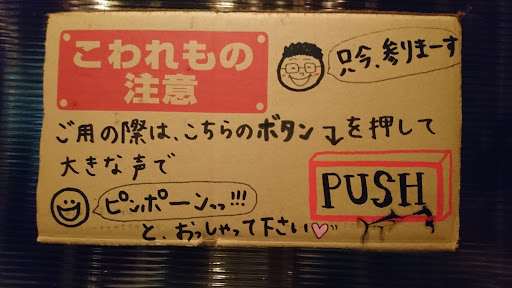 こわれもの
注意
只今、参りまーす
ご用の際は、こちらのボタン↴を押して
大きな声で
ピンポーンっっ!!!
と、おっしゃって下さい♡
PUSH